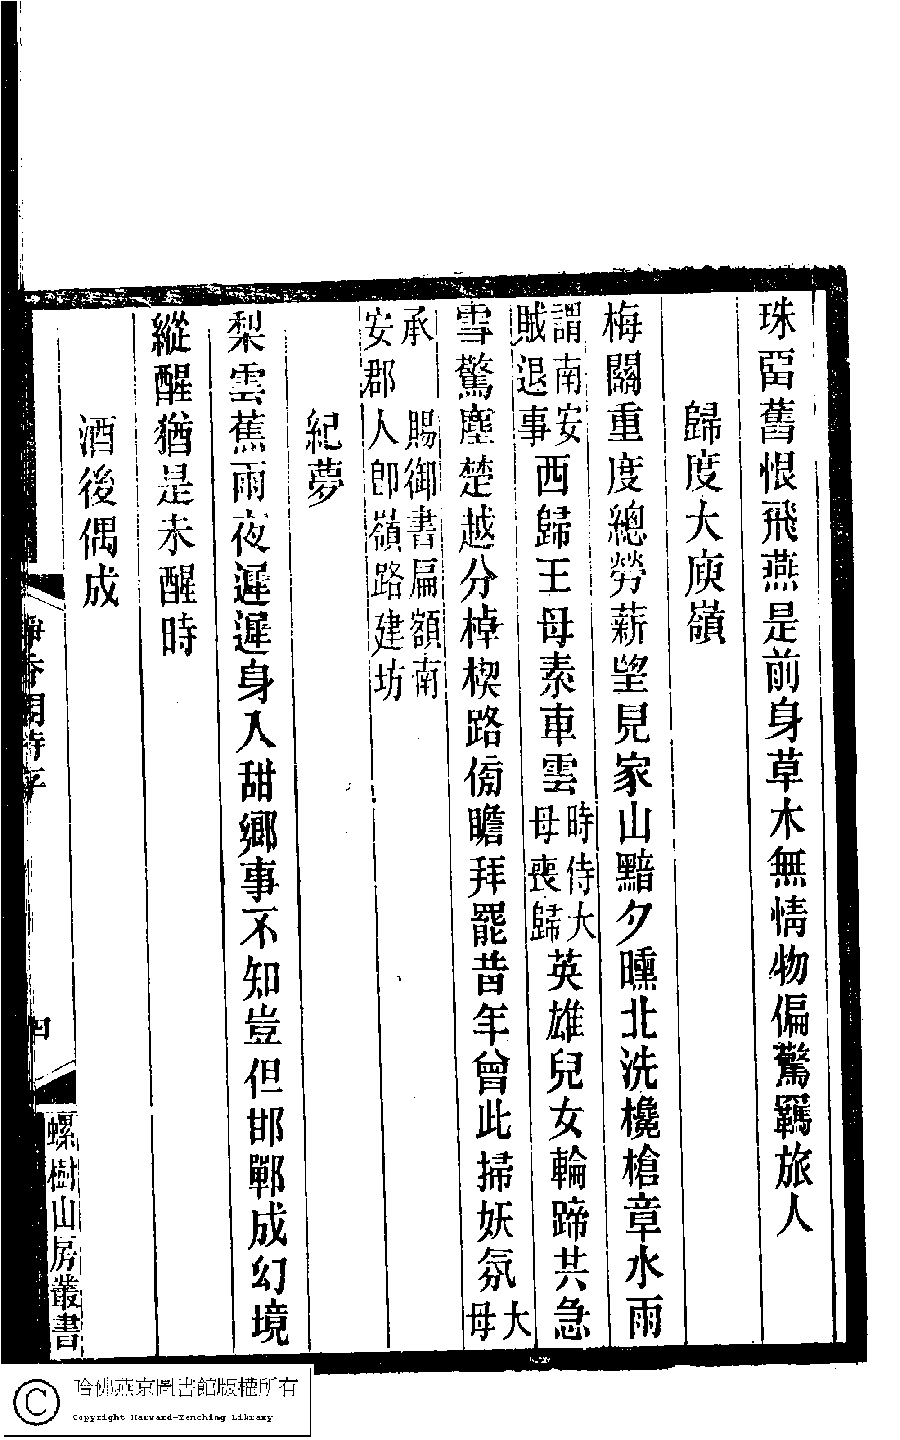 珠畱舊恨飛燕是前身草木無情物偏驚羈旅人
歸度大庾嶺
梅關重度總勞薪望見家山黯夕曛北洗欃槍章水雨
謂南安賊退事西歸王母素車雲時侍大母喪歸英雄兒女輪蹄共急
雪驚塵楚越分棹楔路傍瞻拜罷昔年曾此掃妖氛大母
承 賜御書扁額南安郡人卽嶺路建坊
紀夢
梨雲蕉雨夜遲遲身入甜鄉事不知豈但邯鄲成幻境
縱醒猶是未醒時
酒後偶成
靜香閣詩存
四
螺樹山房叢書
哈佛燕京圖書館版權所有
Copyright Harvard-Yenching Library